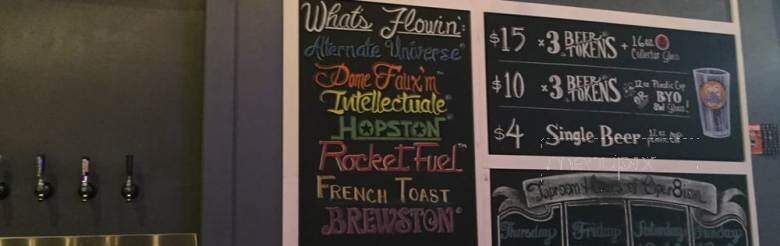 What's Flowin':
Alternate Universe
Dome Faux'm™
Intellectuale
Hopston
Rocket Fuel™
French Toast
Brewston
$15 x3 BEER TOKENS + 16oz Collector Glass
$10 x3 BEER TOKENS 12oz Plastic Cup OR BYO 8W Glass!
$4 Single Beer 12oz
Taproom Hours of Oper8ion
Thursday Friday Saturday Sunday